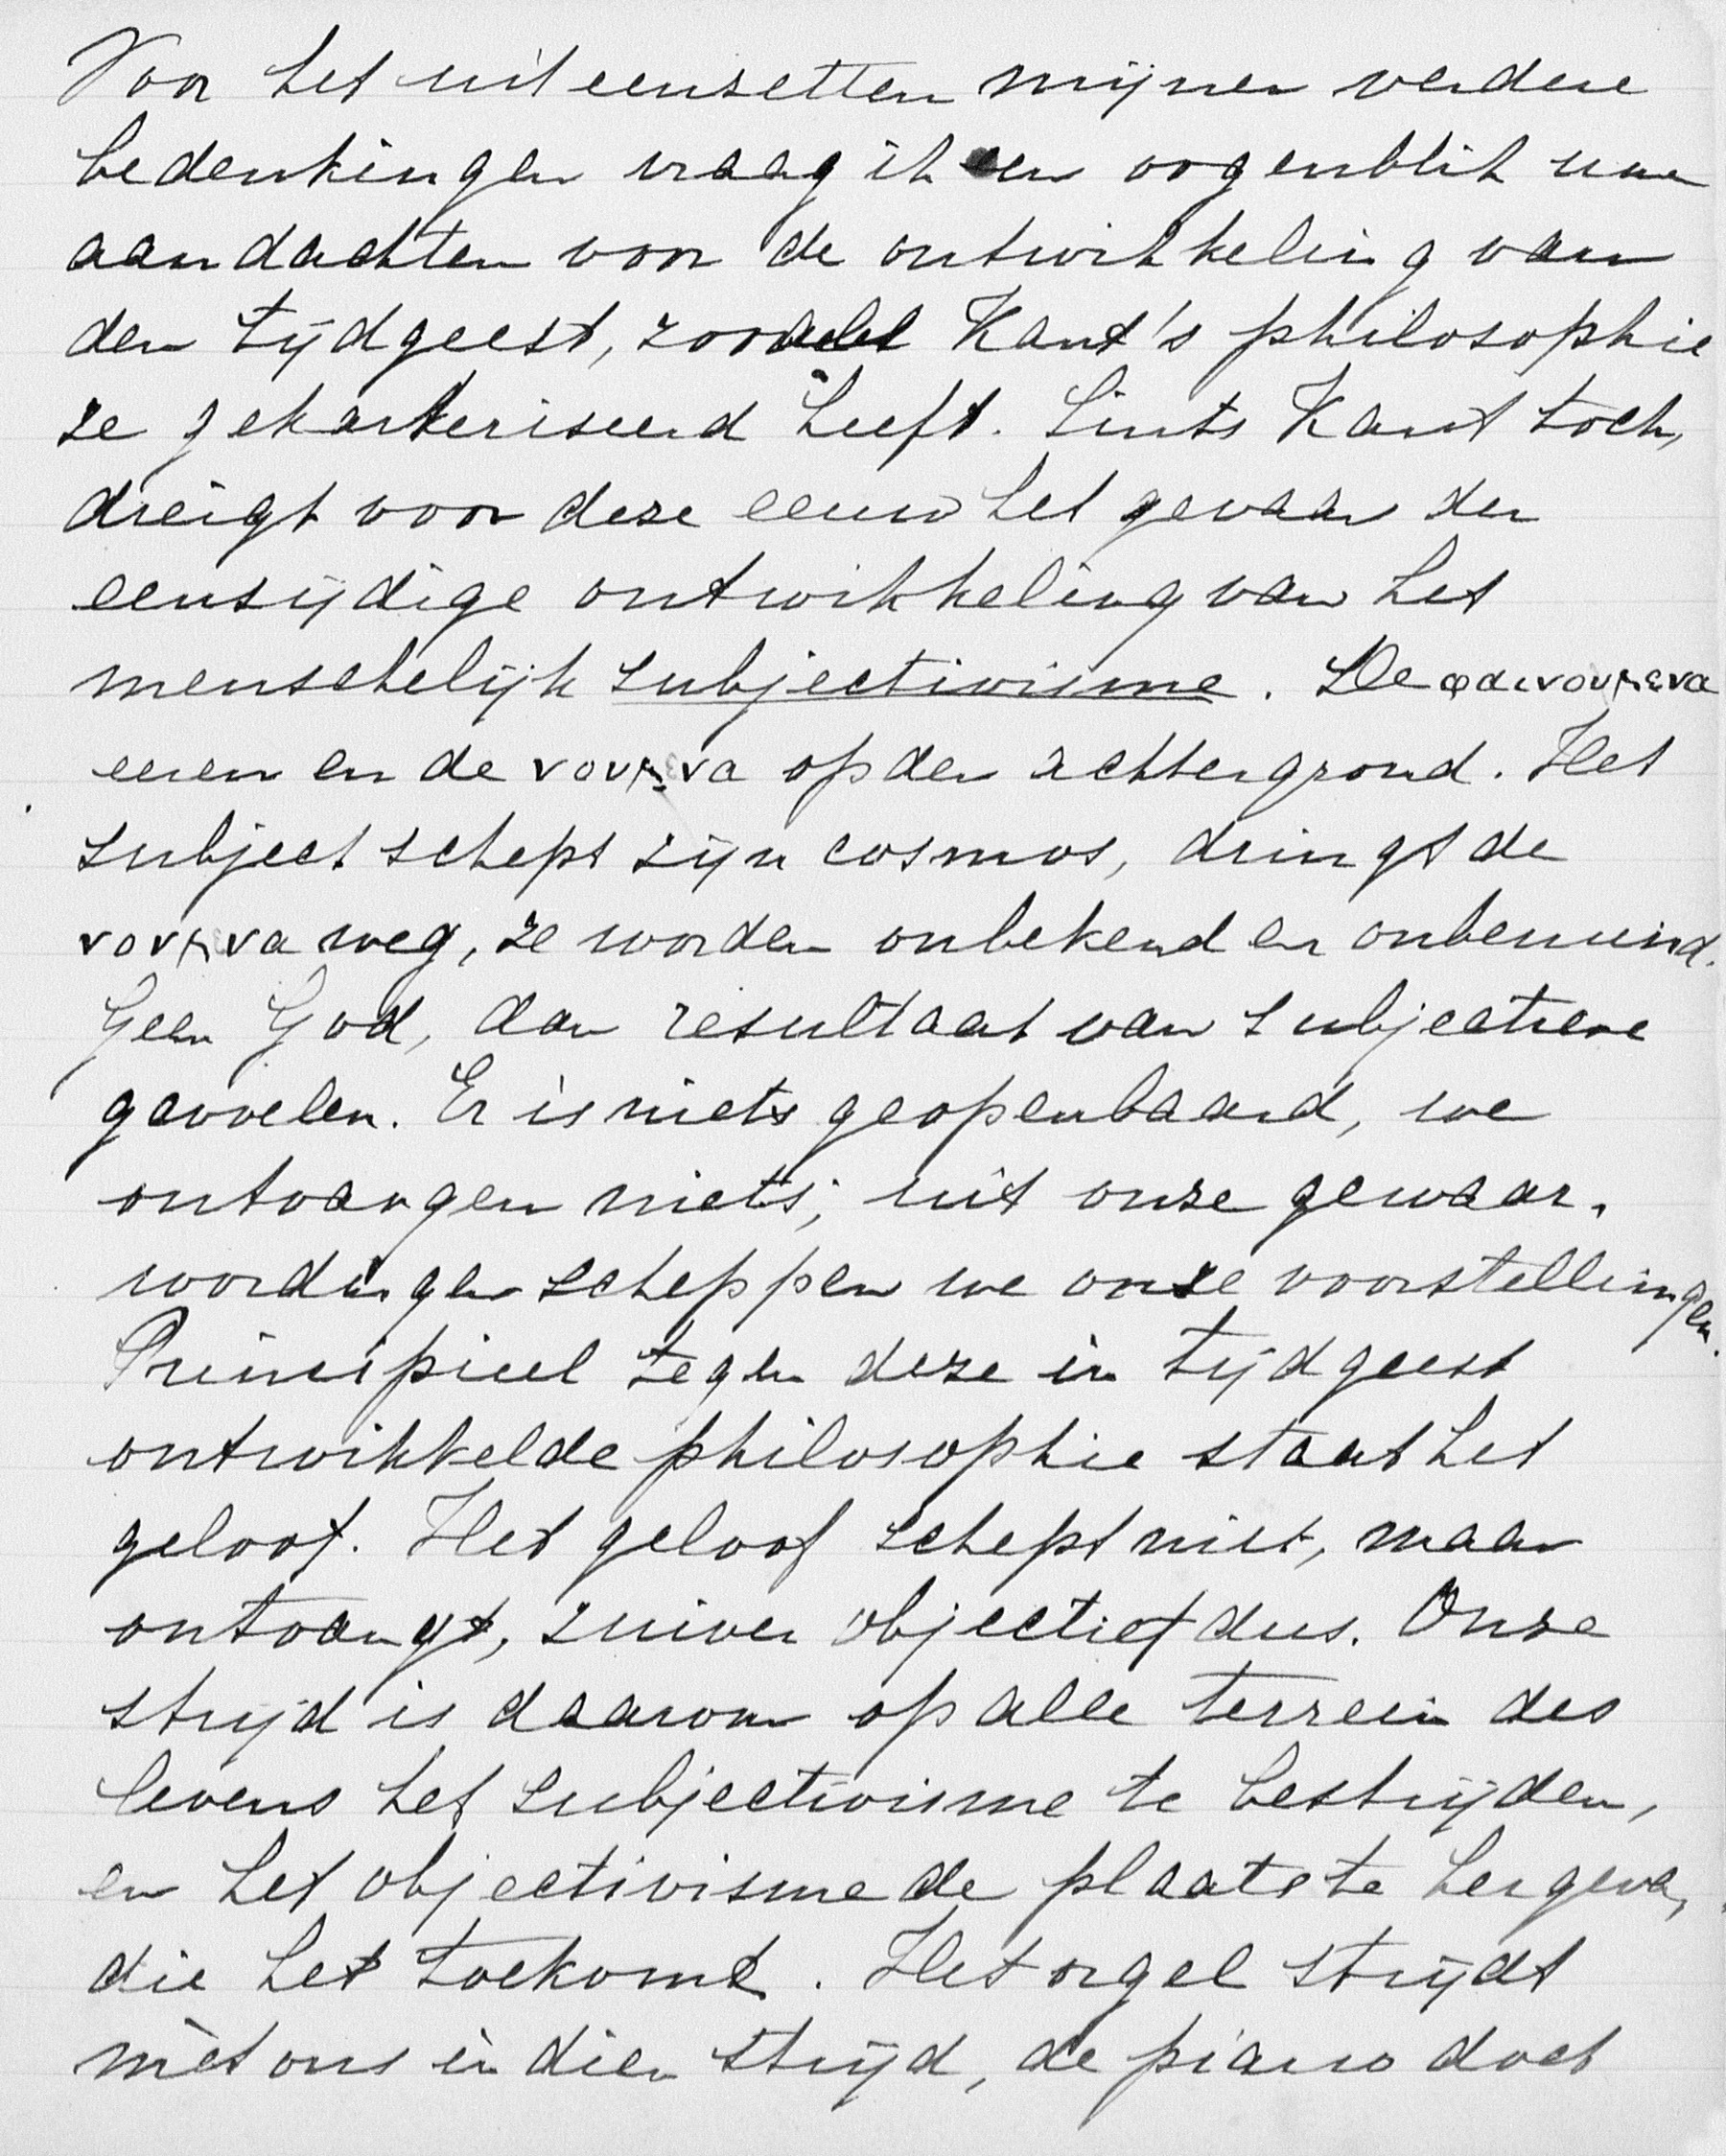 Voor het uiteenzetten mijner verdere
bedenkingen vraag ik een oogenblik uwe
aandachten voor de ontwikkeling van
den tijdgeest, zooals Kant's philosophie
ze gekarkteriseerd heeft. Sints Kant toch,
dreigt voor deze eeuw het gevaar der
eenzijdige ontwikkeling van het
menschelijk subjectivisme. De φαινουμενα
eeren en de νουμενα op den achtergrond. Het
subject schept zijn cosmos, dringt de
νουμενα weg, ze worden onbekend en onbemind.
Geen God, dan resultaat van subjectieve
gevoelen. Er is niets geopenbaard, we
ontvangen niets; uit onze gewaar-
wordingen scheppen we onze voorstellingen.
Principieel tegen deze in tijdgeest
ontwikkelde philosophie staat het
geloof. Het geloof schept niet, maar
ontvangt, zuiver objectief dus. Onze
strijd is daarom op alle terrein des
levens het subjectivisme te bestrijden,
en het objectivisme de plaats te hergeven,
die het toekomt. Het orgel strijdt
mèt ons in dien strijd, de piano doet